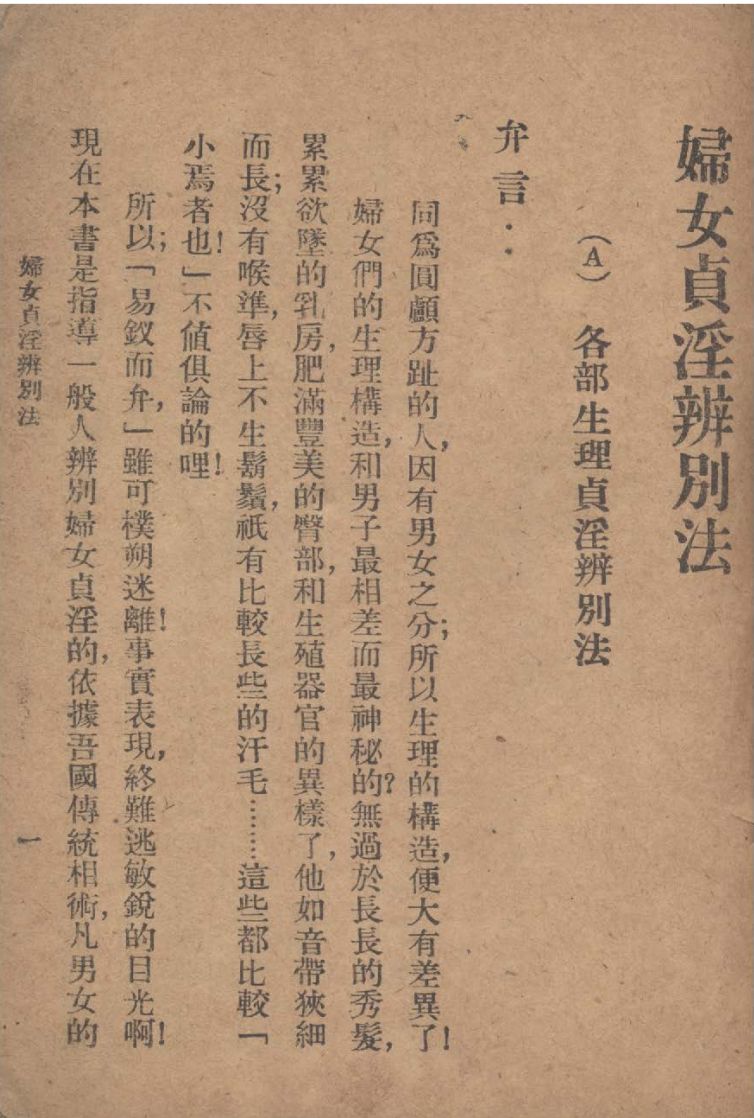 婦女貞淫辨別法
(A) 各部生理貞淫辨別法
弁言：
同爲圓顱方趾的人，因有男女之分；所以生理的構造，便大有差異了！
婦女們的生理構造，和男子最相差而最神秘的？無過於長長的秀髮，
累累欲墜的乳房，肥滿豐美的臀部，和生殖器官的異樣了，他如音帶狹細
而長；沒有喉準，唇上不生鬍鬚，祇有比較長些的汗毛………這些都比較「
小焉者也！」不值俱論的哩！
所以；「易釵而弁，」雖可樸朔迷離！事實表現，終難逃敏銳的目光啊！
現在本書是指導一般人辨別婦女貞淫的，依據吾國傳統相術，凡男女的
婦女貞淫辨別法
一